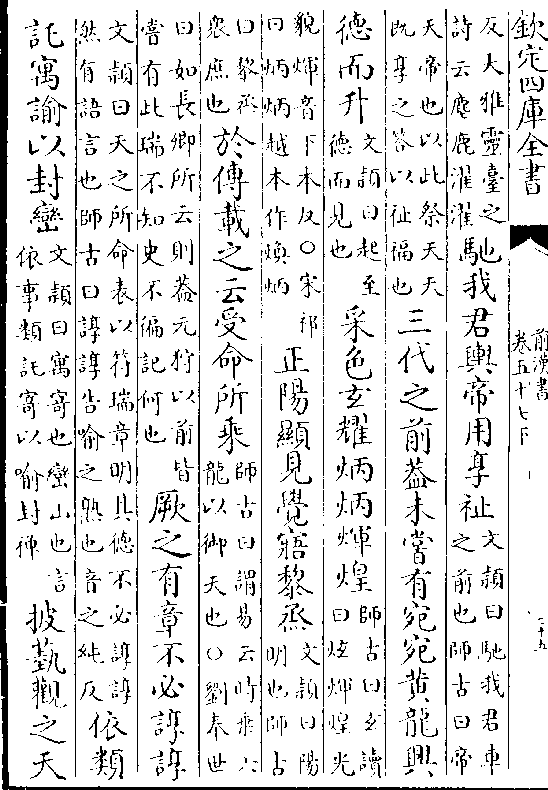 欽定四庫全書
前漢書
卷五十七下
反大雅靈臺之
詩云麀鹿濯濯
馳我君輿帝用享祉
文穎曰馳我君車
之前也師古曰帝
天帝也以此祭天天
既享之荅以祉福也
三代之前蓋未嘗有宛宛黄龍興
德而升
文穎曰起至
德而見也
采色玄耀炳炳煇煌
師古曰玄讀
曰炫煇煌光
貌煇音下本反○宋祁
曰炳炳越本作煥炳
正陽顯見覺寤黎烝
文穎曰陽
明也師古
曰黎烝
衆庶也
於傳載之云受命所乘
師古曰謂易云時乘六
龍以御天也○劉奉世
曰如長卿所云則蓋元狩以前皆
嘗有此瑞不知史不徧記何也
厥之有章不必諄諄
文穎曰天之所命表以符瑞章明其德不必諄諄
然有語言也師古曰諄諄告喻之熟也音之純反
依類
託寓諭以封巒
文穎曰寓寄也巒山也言
依事類託寄以喻封禪
披藝觀之天